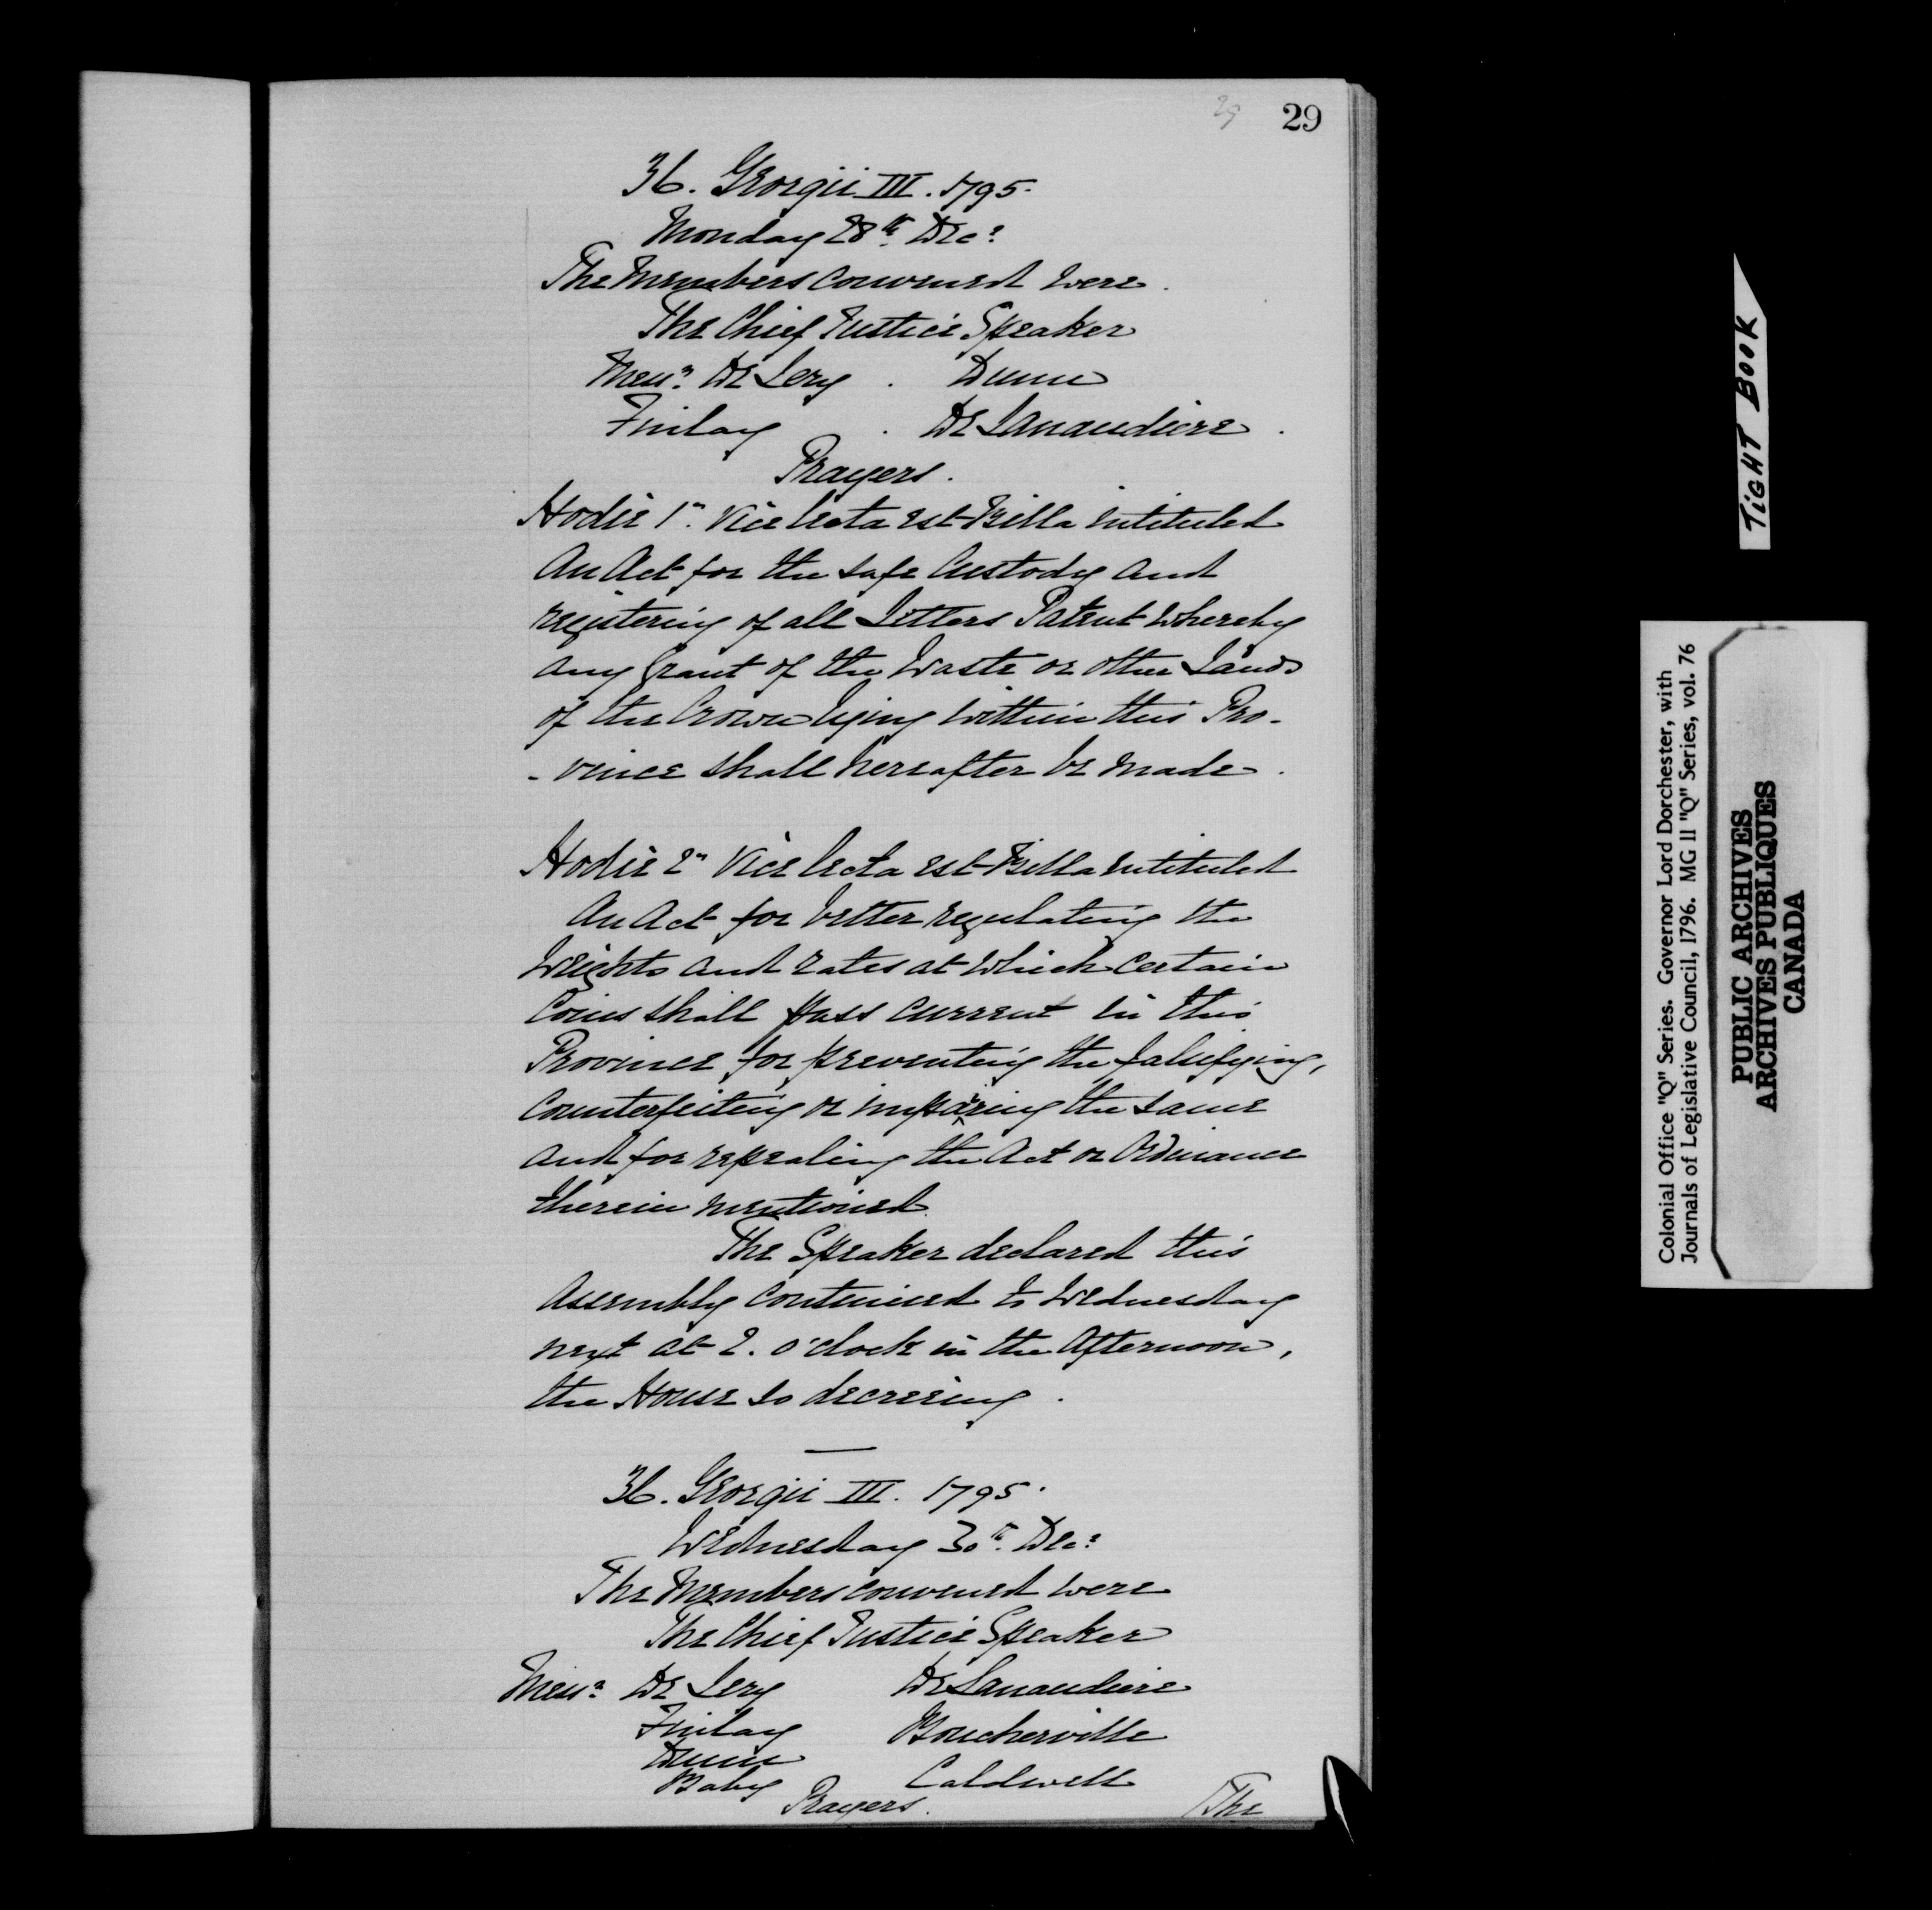 29 29
36. Georgii III. 1795.
Monday 28th Decr
The Members convened were.
The Chief Justice Speaker
Messrs De Lery . Dunn
Finlay . De Lanaudiere.
Prayers.
Hodie 1a. Vice lecta est Billa intituled
An Act for the safe Custody and
registering of all Letters Patent whereby
any Grant of the Waste or other Lands
of the Crown lying within this Pro-
-vince shall hereafter be made.
Hodie 2a Vice lecta est Billa intituled
An Act for better regulating the
Weights and rates at which certain
Coins shall pass current in this
Province for preventing the falsifying,
Counterfeiting or impairing the same
and for repealing the Act or Ordinance
therein mentioned.
The Speaker declared this
Assembly continued to Wednesday
next at 2. o'clock in the Afternoon,
the House so decreeing.
36. Georgii III. 1795.
Wednesday 30th. Decr
The Members convened were
The Chief Justice Speaker
Messrs De Lery De Lanaudiere
Finlay Boucherville
Dunn
Baby Caldwell
Prayers. /The
TIGHT BOOK
Colonial Office "Q" Series. Governor Lord Dorchester, with
Journals of Legislative Council, 1796. MG 11 "Q" Series, vol. 76
PUBLIC ARCHIVES
ARCHIVES PUBLIQUES
CANADA